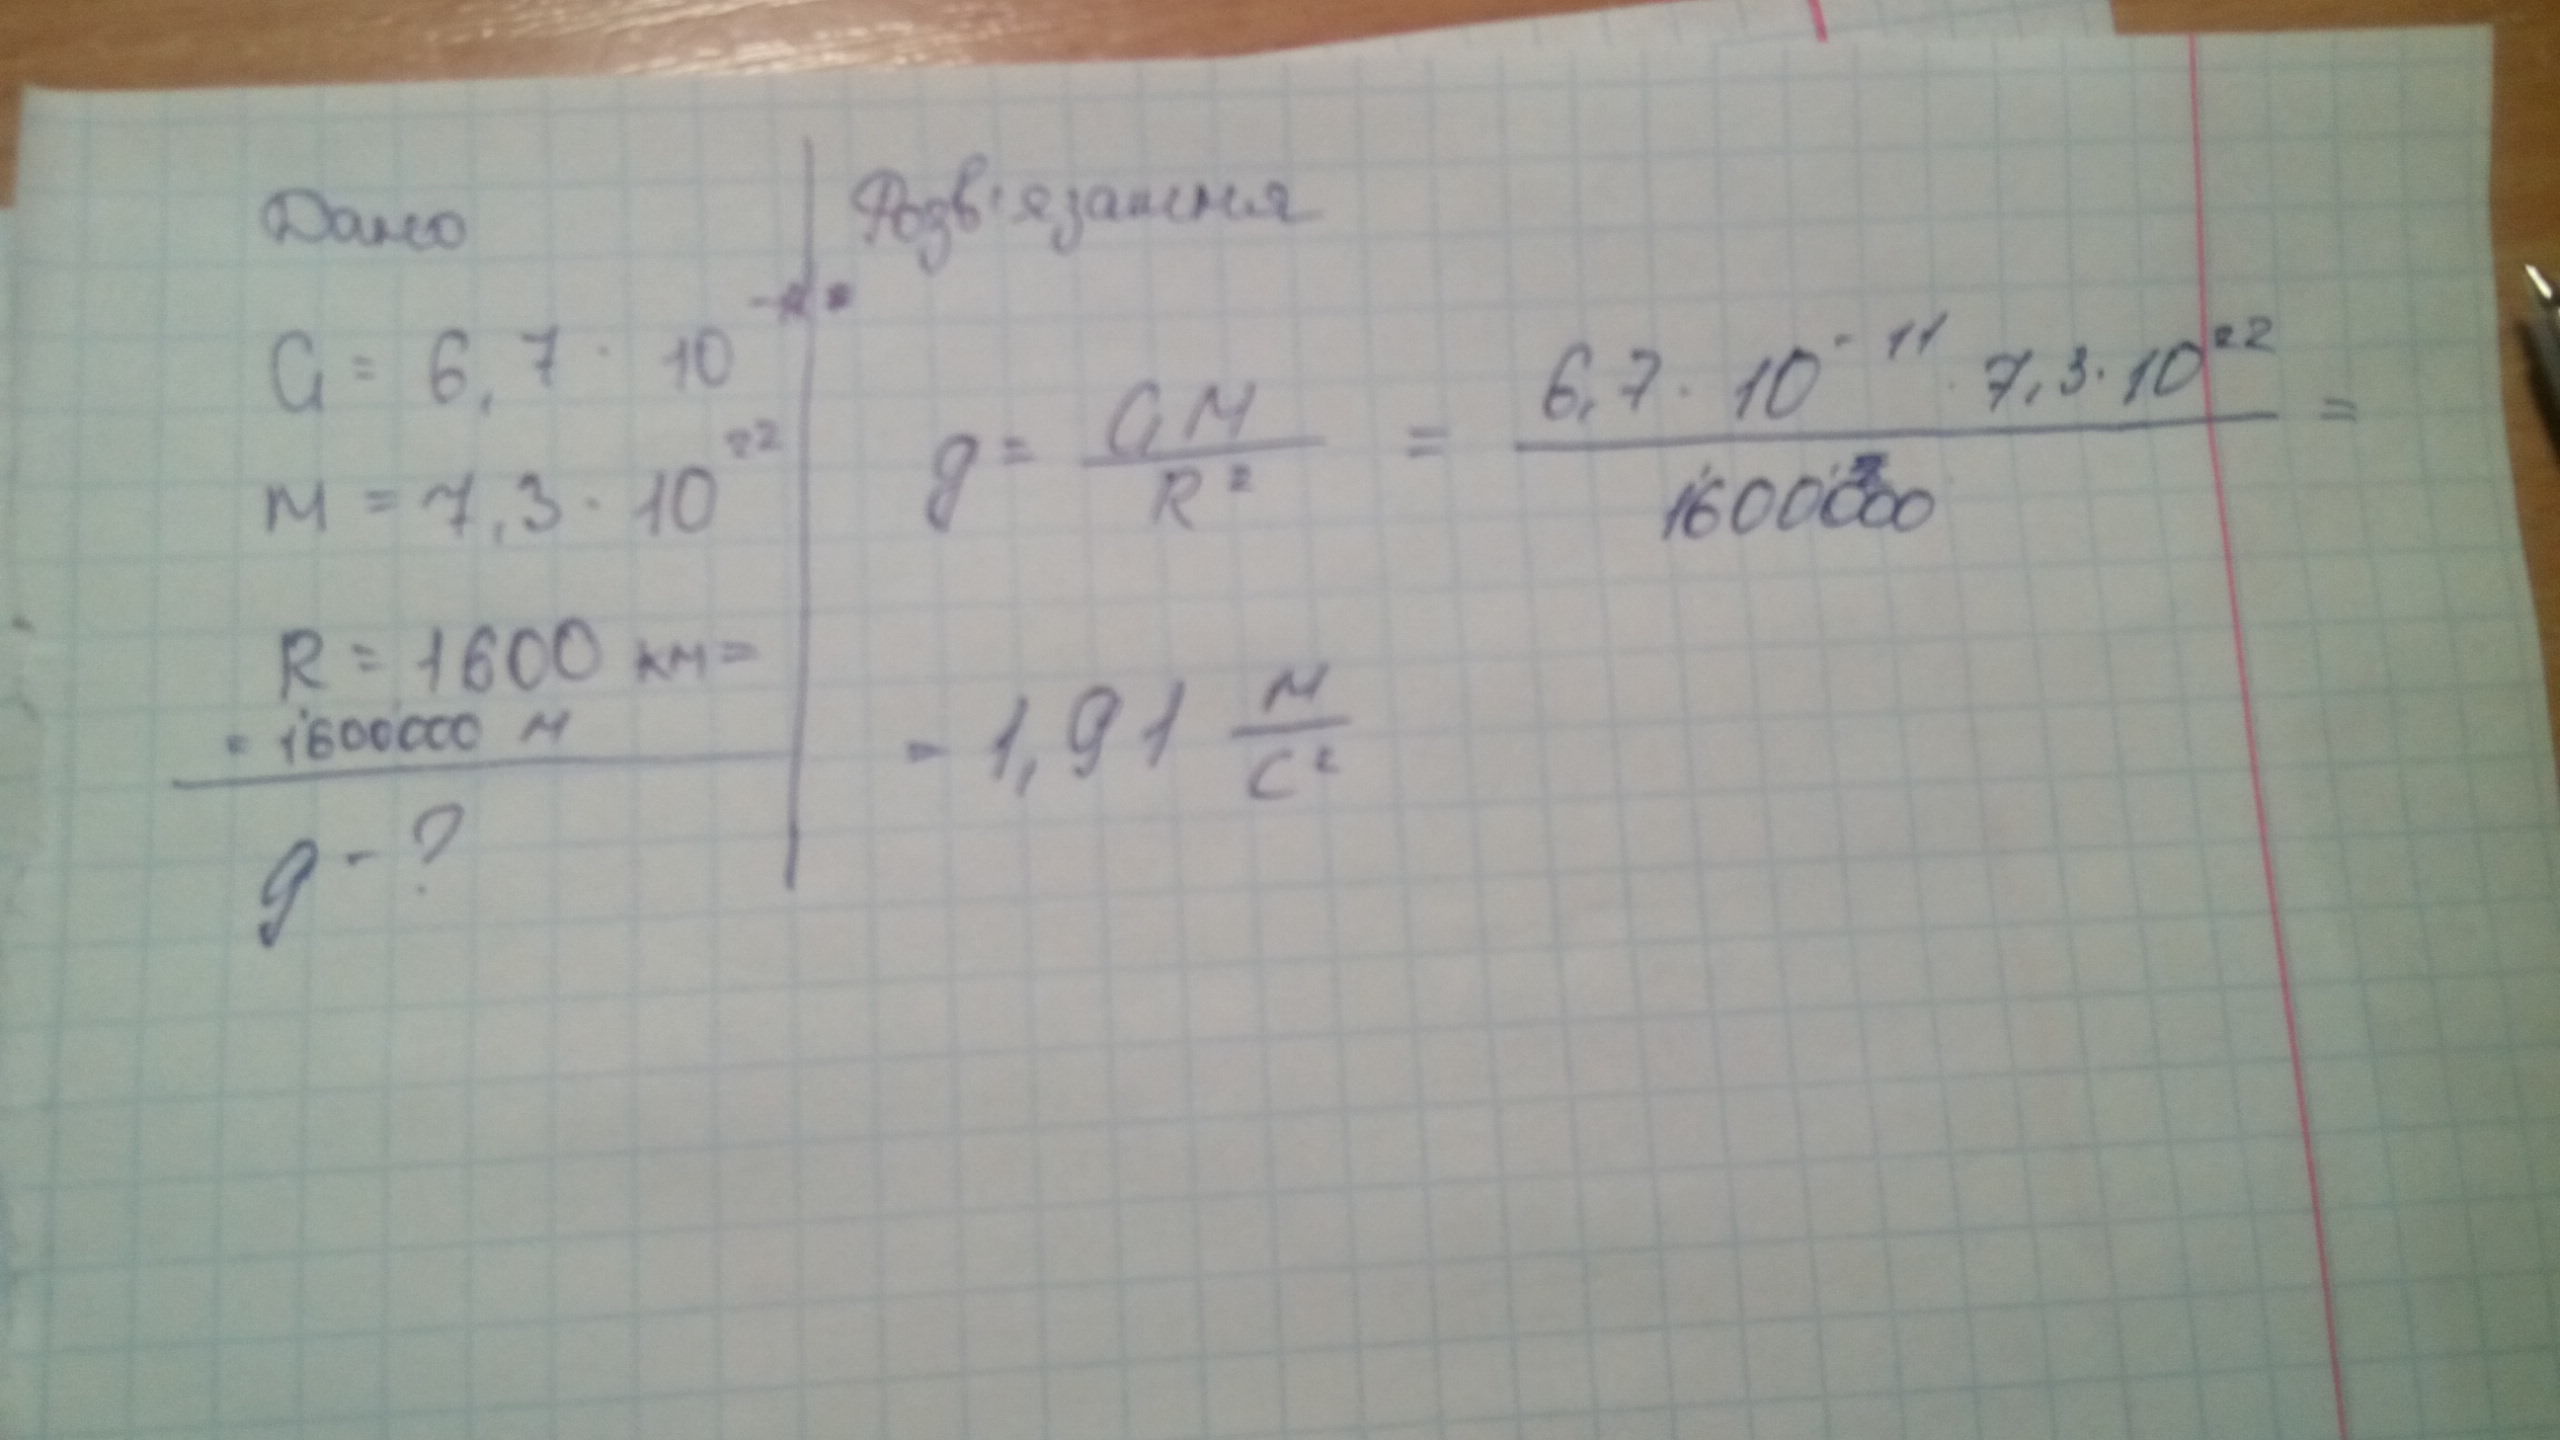 Дано
G = 6,7 · 10
M = 7,3 · 10²²
R = 1600 км =
= 1600000 м
g - ?
Розв'язання
g = GM / R² = 6,7 · 10⁻¹¹ · 7,3 · 10²² / 1600000 =
= 1,91 м / с²